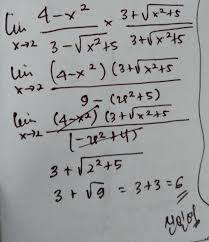 lim x→2 4-x² / 3-√x²+5 × 3+√x²+5 / 3+√x²+5
lim x→2 (4-x²)(3+√x²+5) / 9-(x²+5)
lim x→2 (4-x²)(3+√x²+5) / (-x²+4)
3+√2²+5
3+√9 = 3+3=6